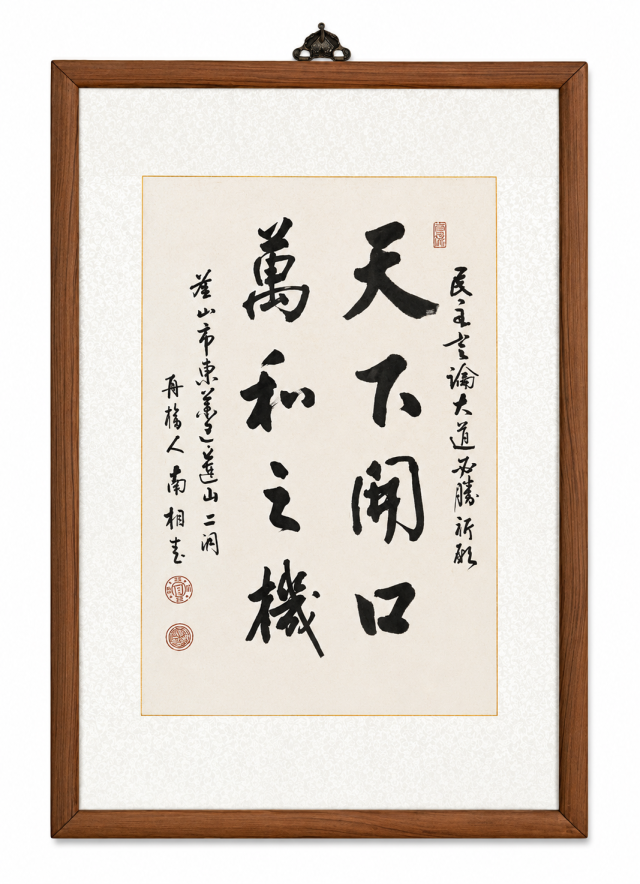 民主言論大道必勝祈願
天下開口
萬和之機
釜山市東萊區蓮山二洞
再檜人南相春